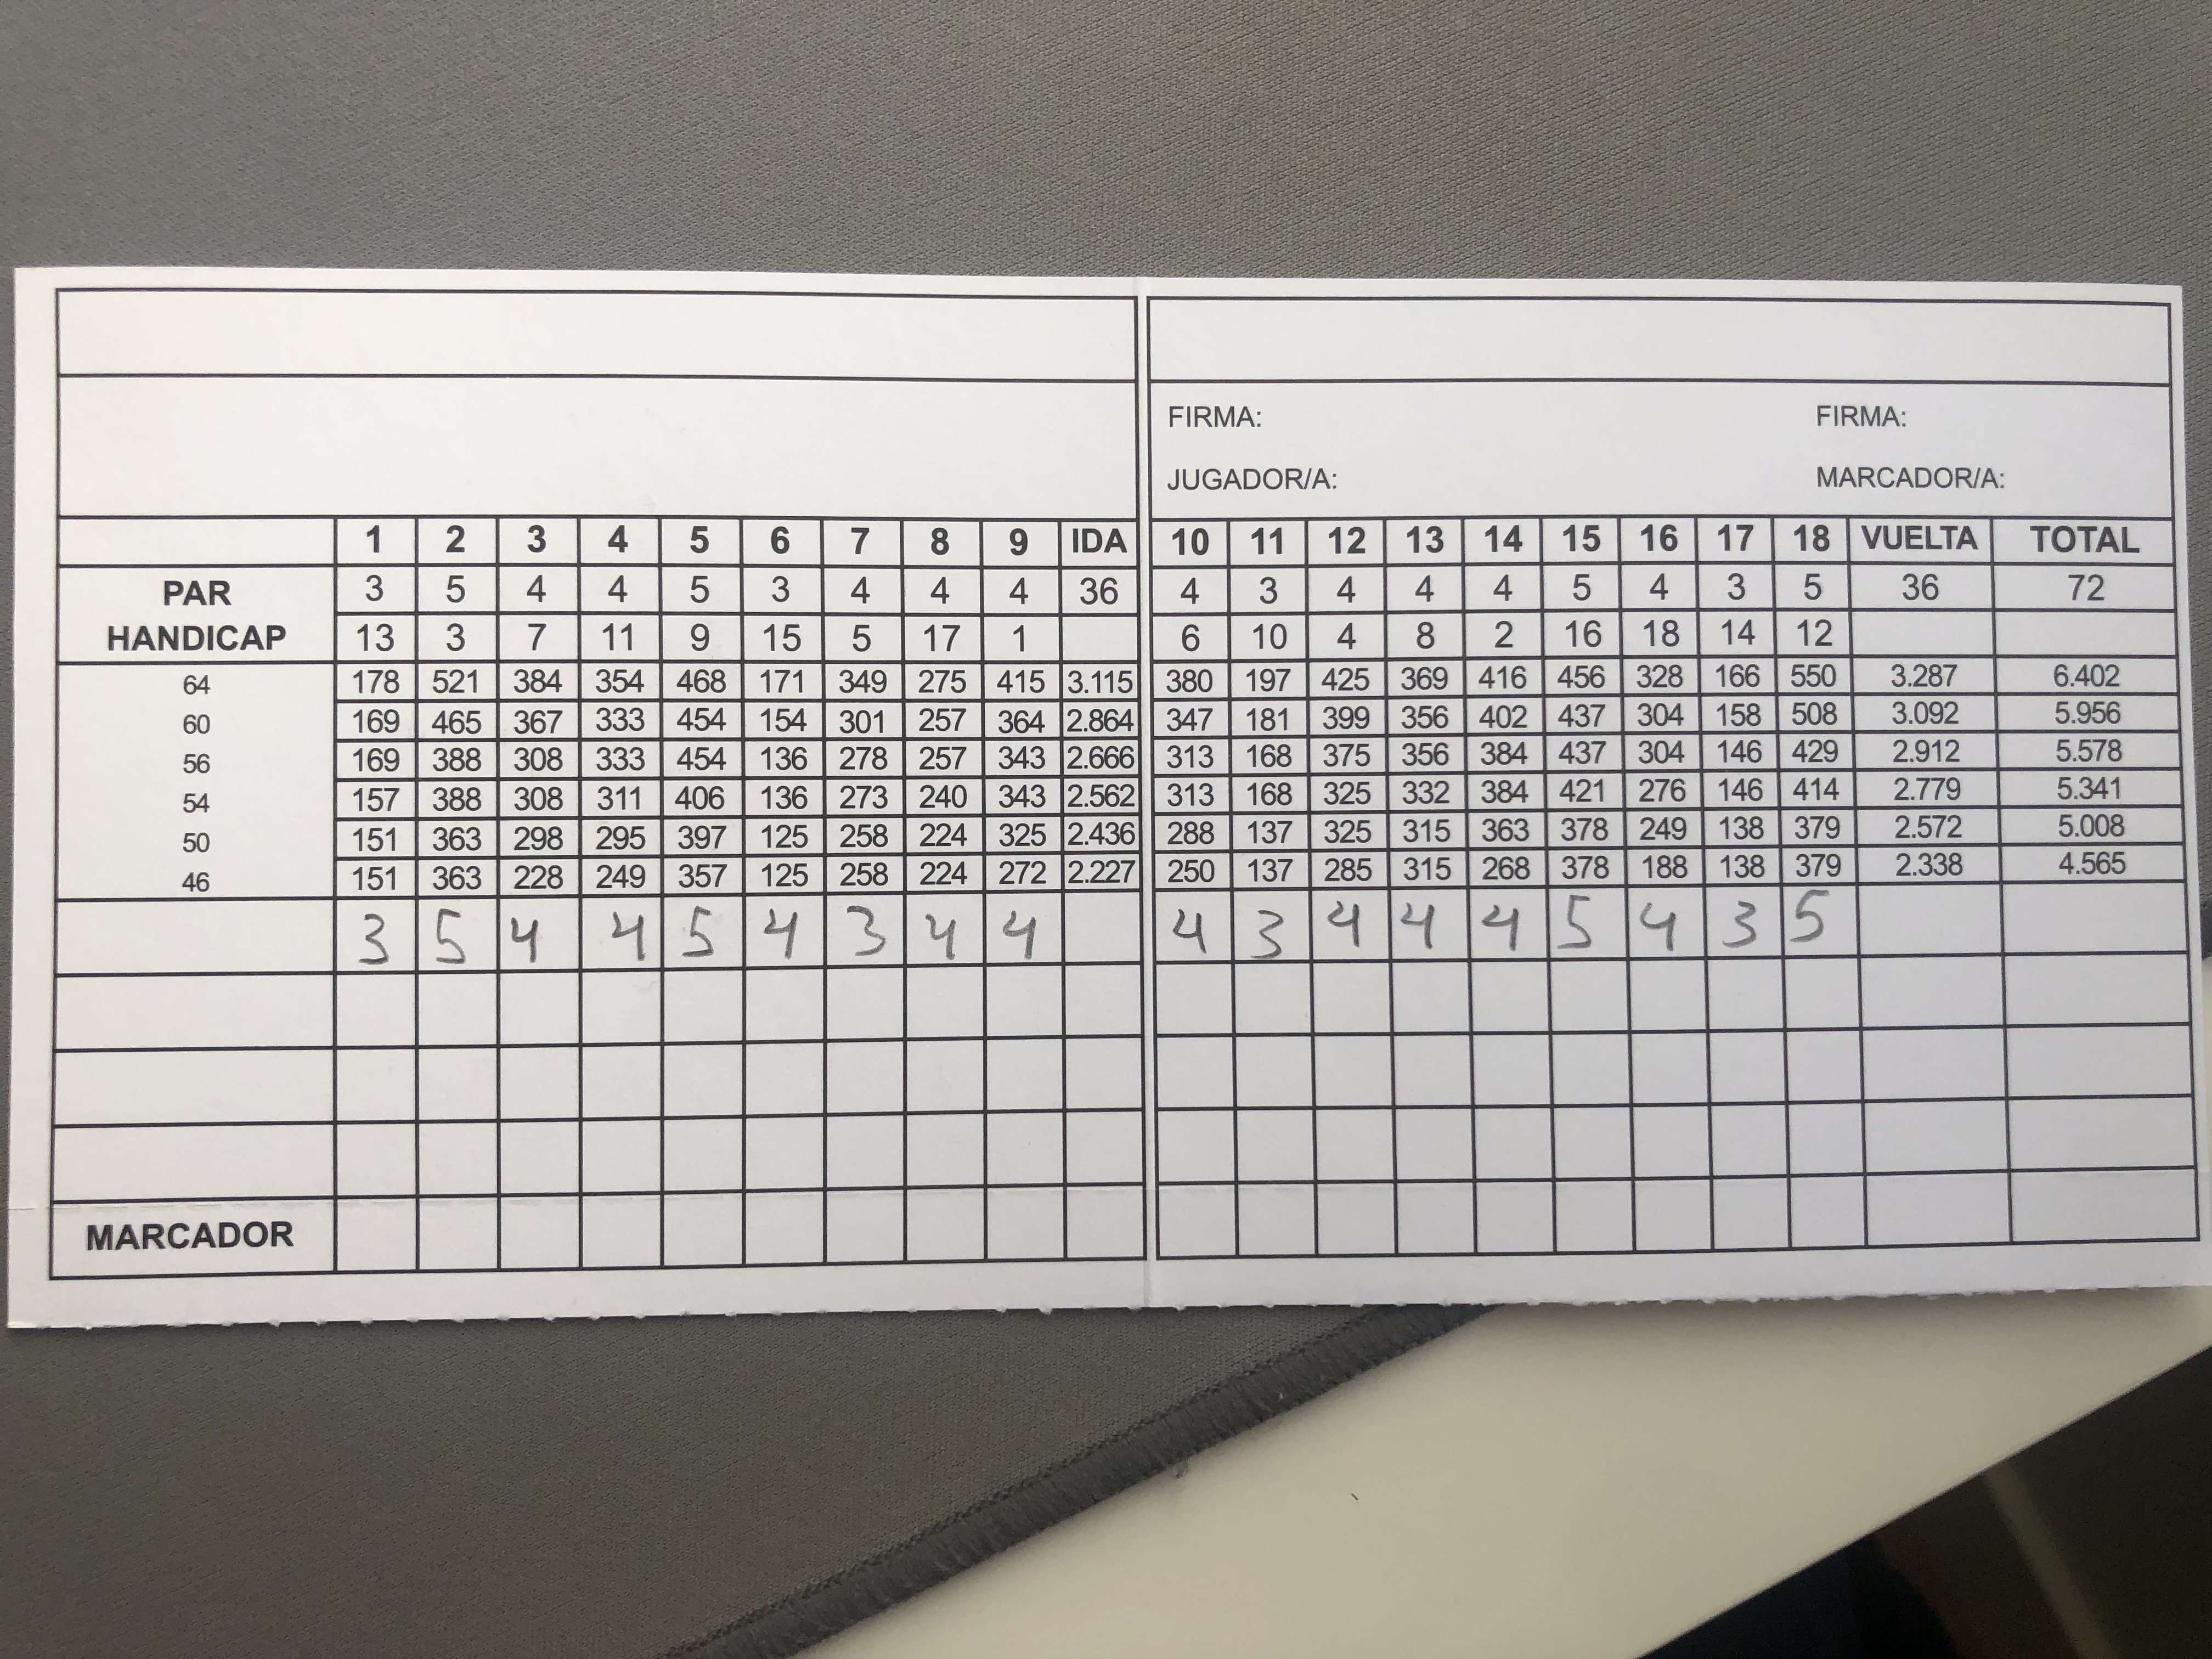 FIRMA: FIRMA:
JUGADOR/A: MARCADOR/A:
1 2 3 4 5 6 7 8 9 IDA 10 11 12 13 14 15 16 17 18 VUELTA TOTAL
PAR 3 5 4 4 5 3 4 4 4 36 4 3 4 4 4 5 4 3 5 36 72
HANDICAP 13 3 7 11 9 15 5 17 1 6 10 4 8 2 16 18 14 12
64 178 521 384 354 468 171 349 275 415 3.115 380 197 425 369 416 456 328 166 550 3.287 6.402
60 169 465 367 333 454 154 301 257 364 2.864 347 181 399 356 402 437 304 158 508 3.092 5.956
56 169 388 308 333 454 136 278 257 343 2.666 313 168 375 356 384 437 304 146 429 2.912 5.578
54 157 388 308 311 406 136 273 240 343 2.562 313 168 325 332 384 421 276 146 414 2.779 5.341
50 151 363 298 295 397 125 258 224 325 2.436 288 137 325 315 363 378 249 138 379 2.572 5.008
46 151 363 228 249 357 125 258 224 272 2.227 250 137 285 315 268 378 188 138 379 2.338 4.565
3 5 4 4 5 4 3 4 4 4 3 4 4 4 5 4 3 5
MARCADOR